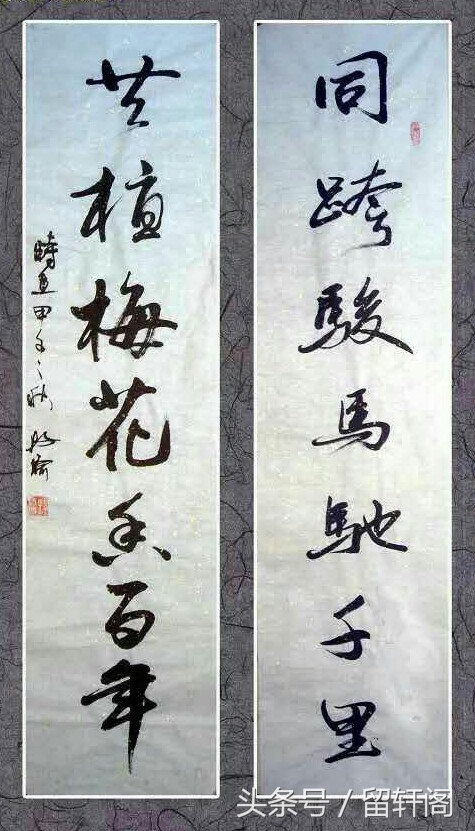 同跨駿馬馳千里
共植梅花香百年
甲午之秋
头条号 / 留轩阁